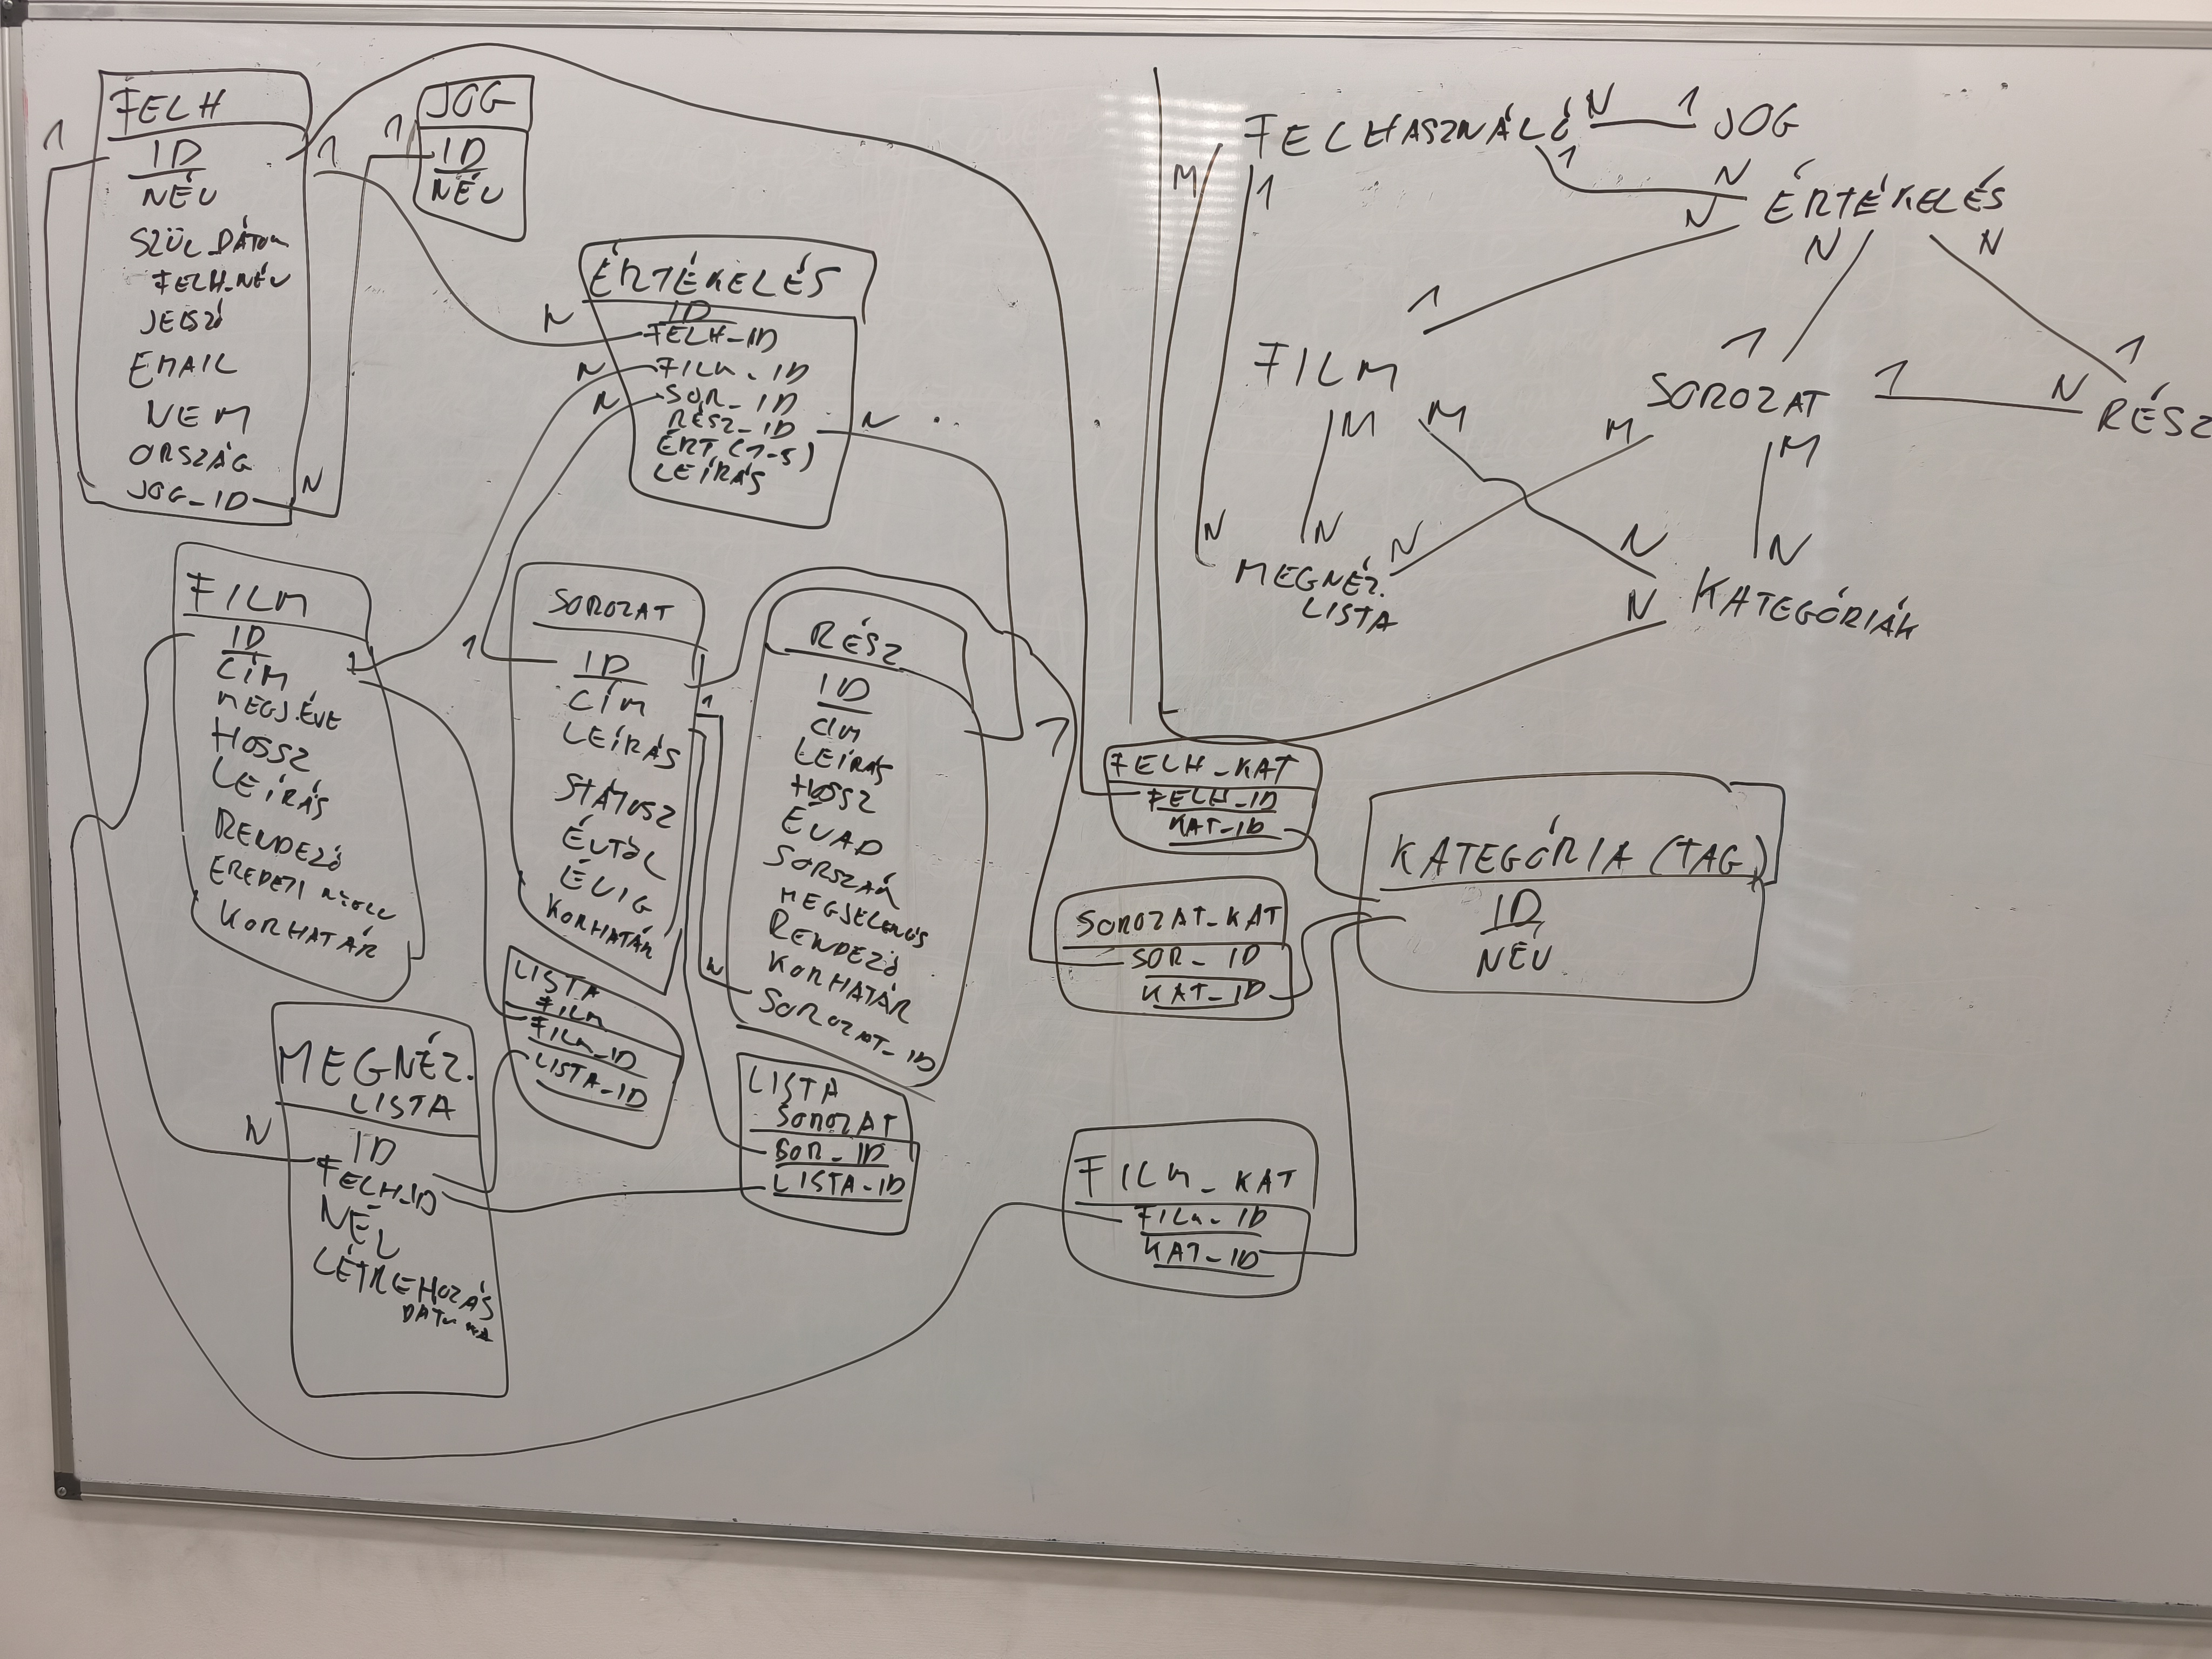 FELH
ID
NÉV
SZÜL_DÁTUM
FELH_NÉV
JELSZÓ
EMAIL
NEM
ORSZÁG
JOG_ID
1
1
N
JOG
1
ID
NÉV
ÉRTÉKELÉS
ID
N FELH_ID
N FILM_ID
N SOR_ID
RÉSZ_ID N
ÉRT (1-5)
LEÍRÁS
FILM
ID
1
CÍM
MEGJ.ÉVE
HOSSZ
LEÍRÁS
RENDEZŐ
EREDETI NYELV
KORHATÁR
SOROZAT
1 ID
CÍM 1
LEÍRÁS
STÁTUSZ
ÉVTŐL
ÉVIG
KORHATÁR
RÉSZ
ID
CÍM
1
LEÍRÁS
HOSSZ
ÉVAD
SORSZÁM
MEGJELENÉS
RENDEZŐ
KORHATÁR
N SOROZAT_ID
MEGNÉZ.
LISTA
N ID
FELH_ID
NÉV
LÉTREHOZÁS
DÁTUMA
LISTA
FILM
FILM_ID
LISTA_ID
LISTA
SOROZAT
SOR_ID
LISTA_ID
FELH_KAT
FELH_ID
KAT_ID
SOROZAT_KAT
SOR_ID
KAT_ID
FILM_KAT
FILM_ID
KAT_ID
KATEGÓRIA (TAG)
ID
NÉV
FELHASZNÁLÓ N 1 JOG
M 1 1 N
N ÉRTÉKELÉS
N N
1 1 1
FILM SOROZAT 1 N RÉSZ
M M M M
N N N N N
MEGNÉZ.
LISTA
N KATEGÓRIÁK